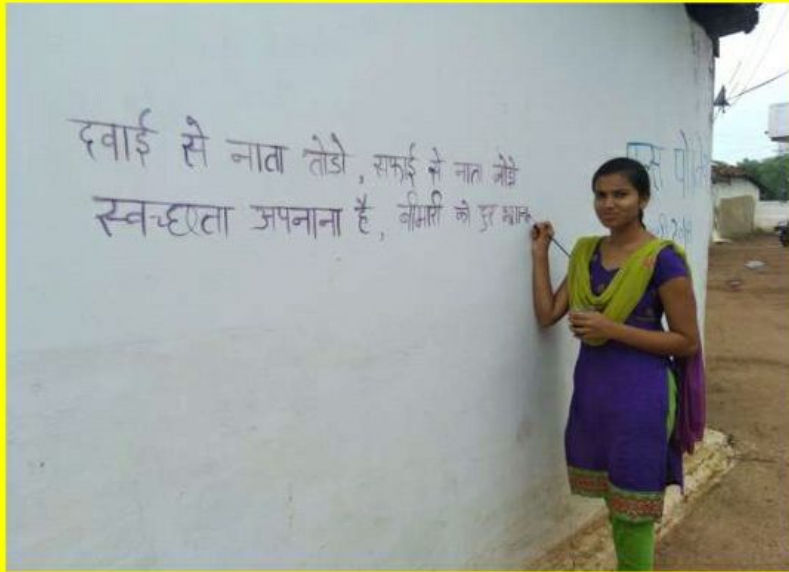 दवाई से नाता तोडो, सफाई से नाता जोडो
स्वच्छता अपनाना है, बीमारी को दुर भगाना